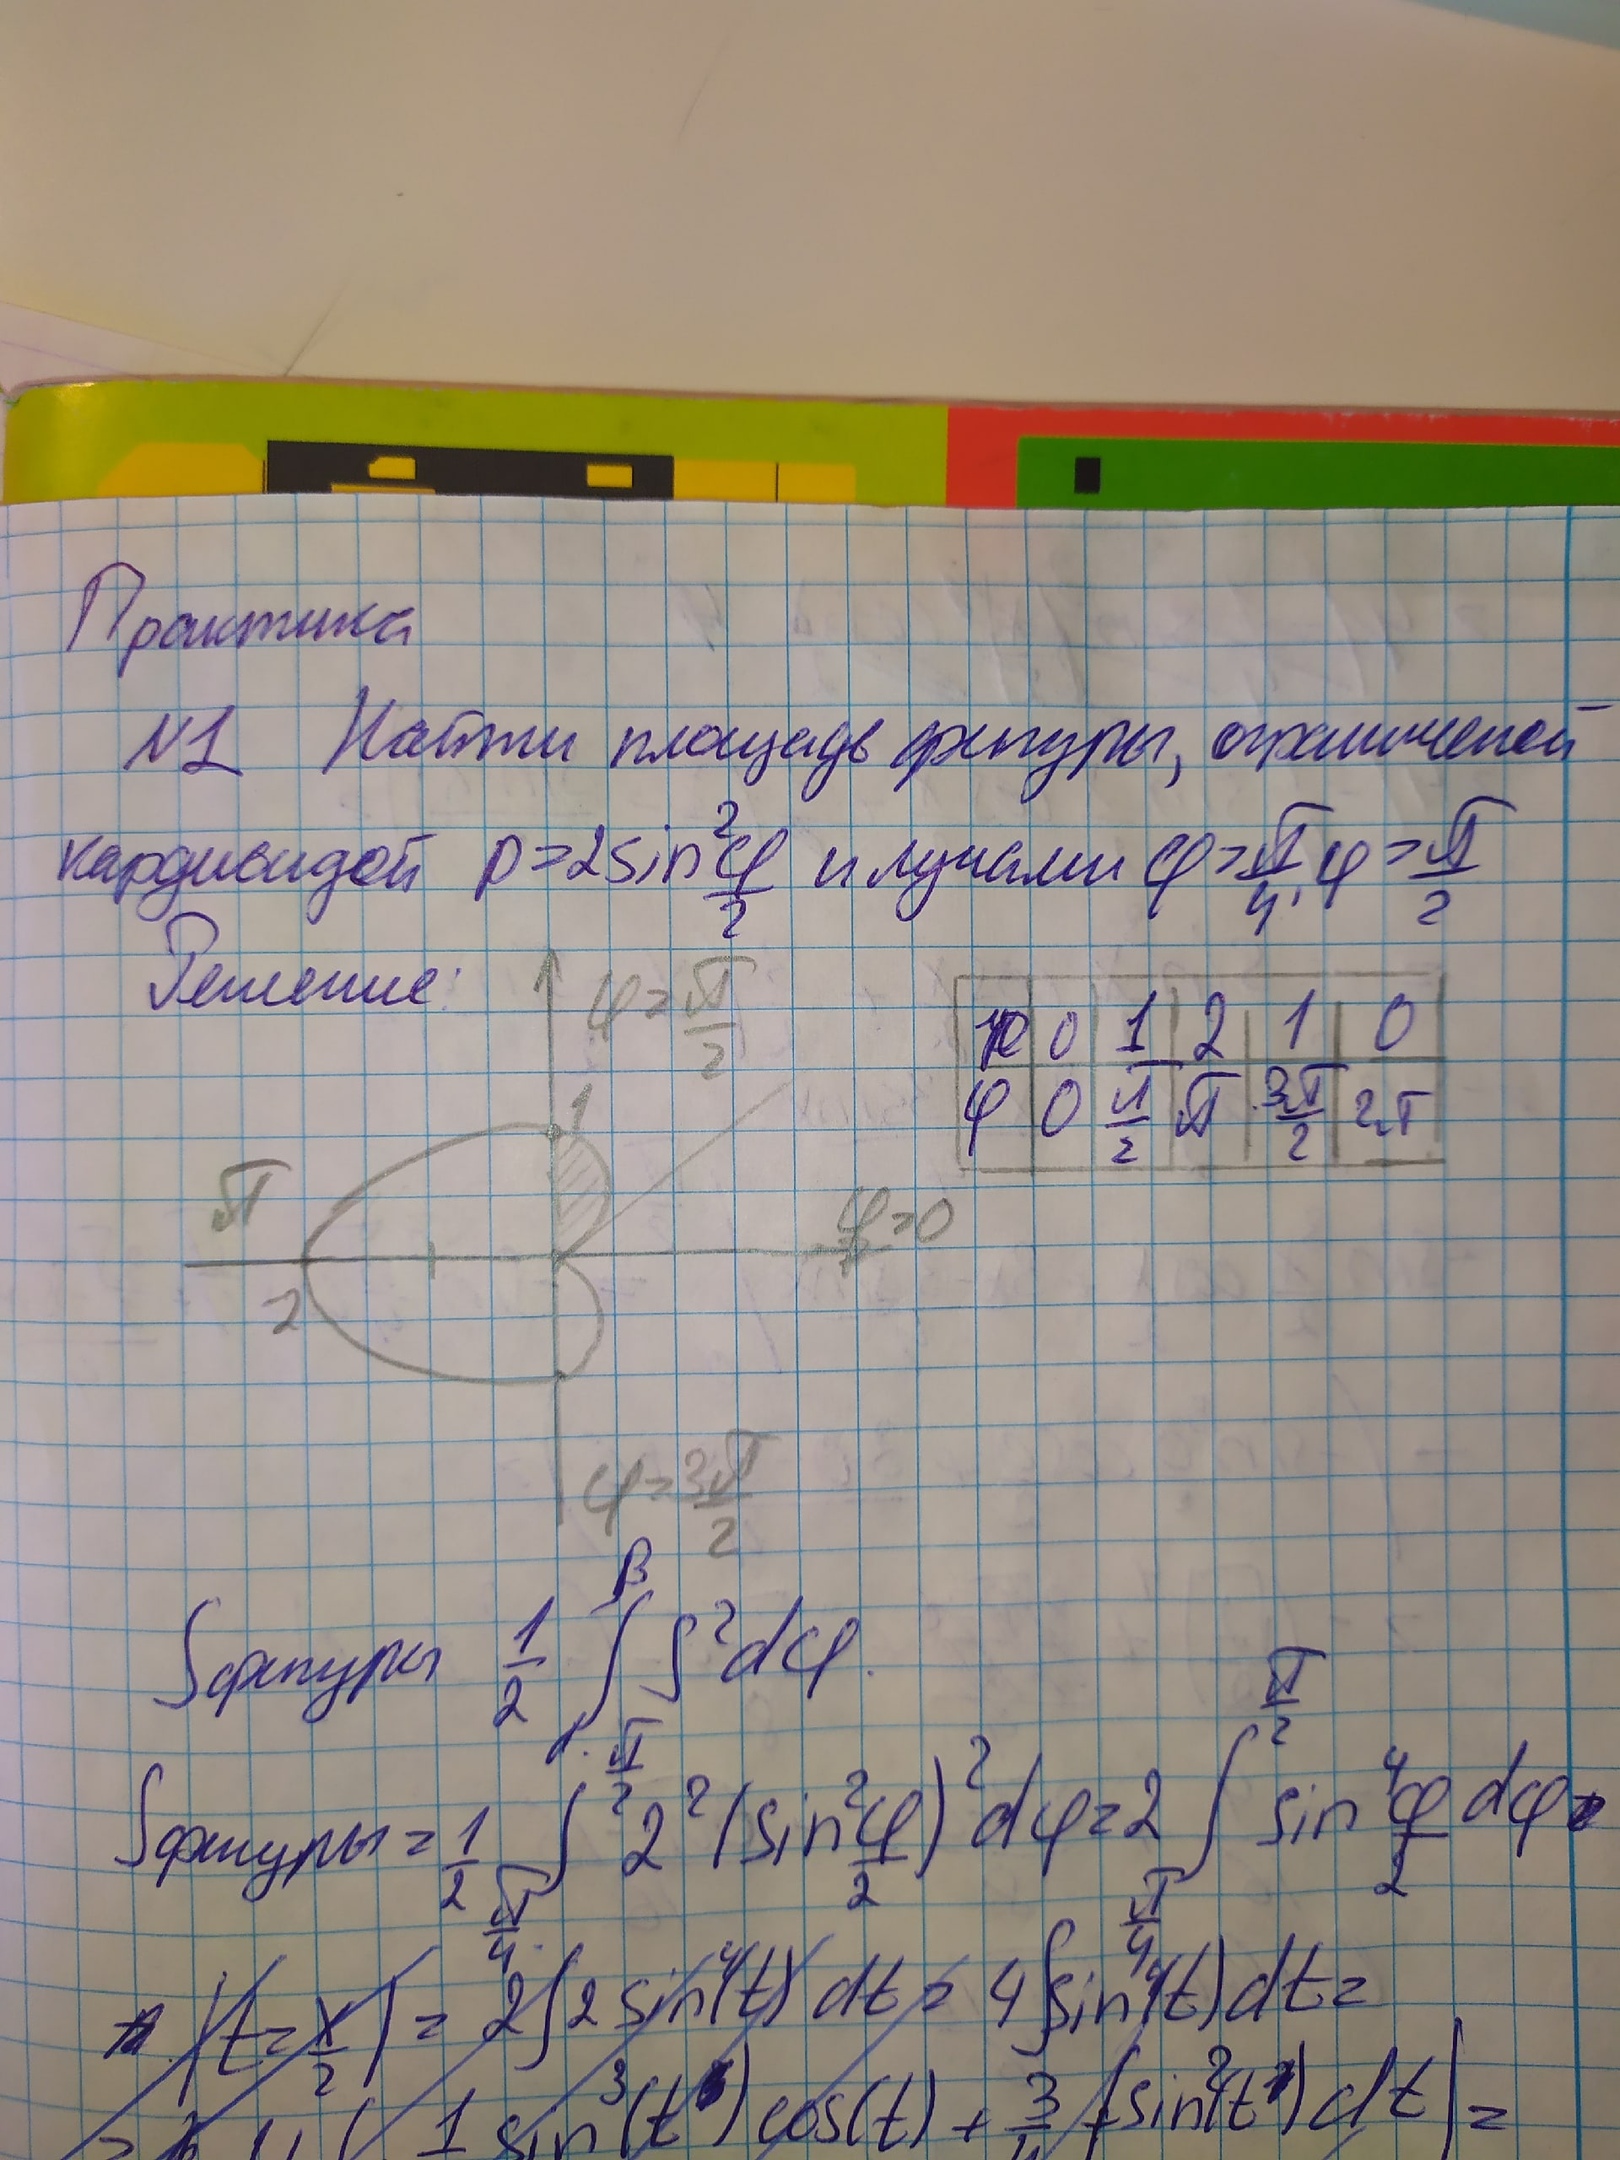 Практика
N1 Найти площадь фигуры, ограниченой
кардиоидой ρ=2sin²φ/2 и лучами φ=π/4, φ=π/2
Решение:
φ=π/2
1
π
2
φ=0
φ=3π/2
ρ 0 1 2 1 0
φ 0 π/2 π 3π/2 2π
Sфигуры 1/2 ∫_α^β ρ²dφ.
Sфигуры = 1/2 ∫_{π/4}^{π/2} 2²(sin²φ/2)²dφ = 2 ∫_{π/4}^{π/2} sin⁴φ/2 dφ=
= |t=x/2| = 2∫2sin⁴(t)dt = 4∫sin⁴(t)dt=
1 sin³(t)cos(t) + 3/4 ∫sin²(t)dt|=